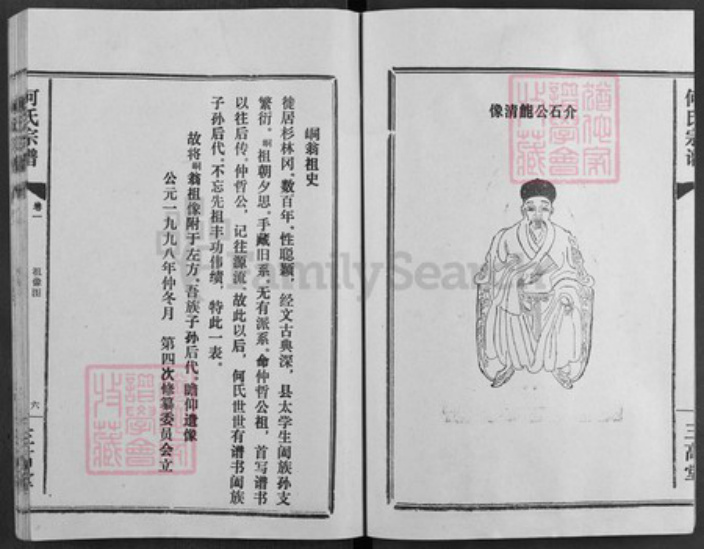 介石公龍清像
何氏宗谱
三高堂
峒翁祖史
徙居杉林冈。数百年。性聪颖，经文古典深，县太学生阖族孙支
繁衍。峒祖朝夕思。手藏旧系。无有派系。命仲哲公祖，首写谱书
以往后传。仲哲公，记往源流。故此以后，何氏世世有谱书阖族
子孙后代。不忘先祖丰功伟绩，特此一表。
故将峒翁祖像附于左方。吾族子孙后代。瞻仰遗像
公元一九九八年仲冬月 第四次修纂委员会立
何氏宗谱
卷一
祖像图
六
三高堂
FamilySearch